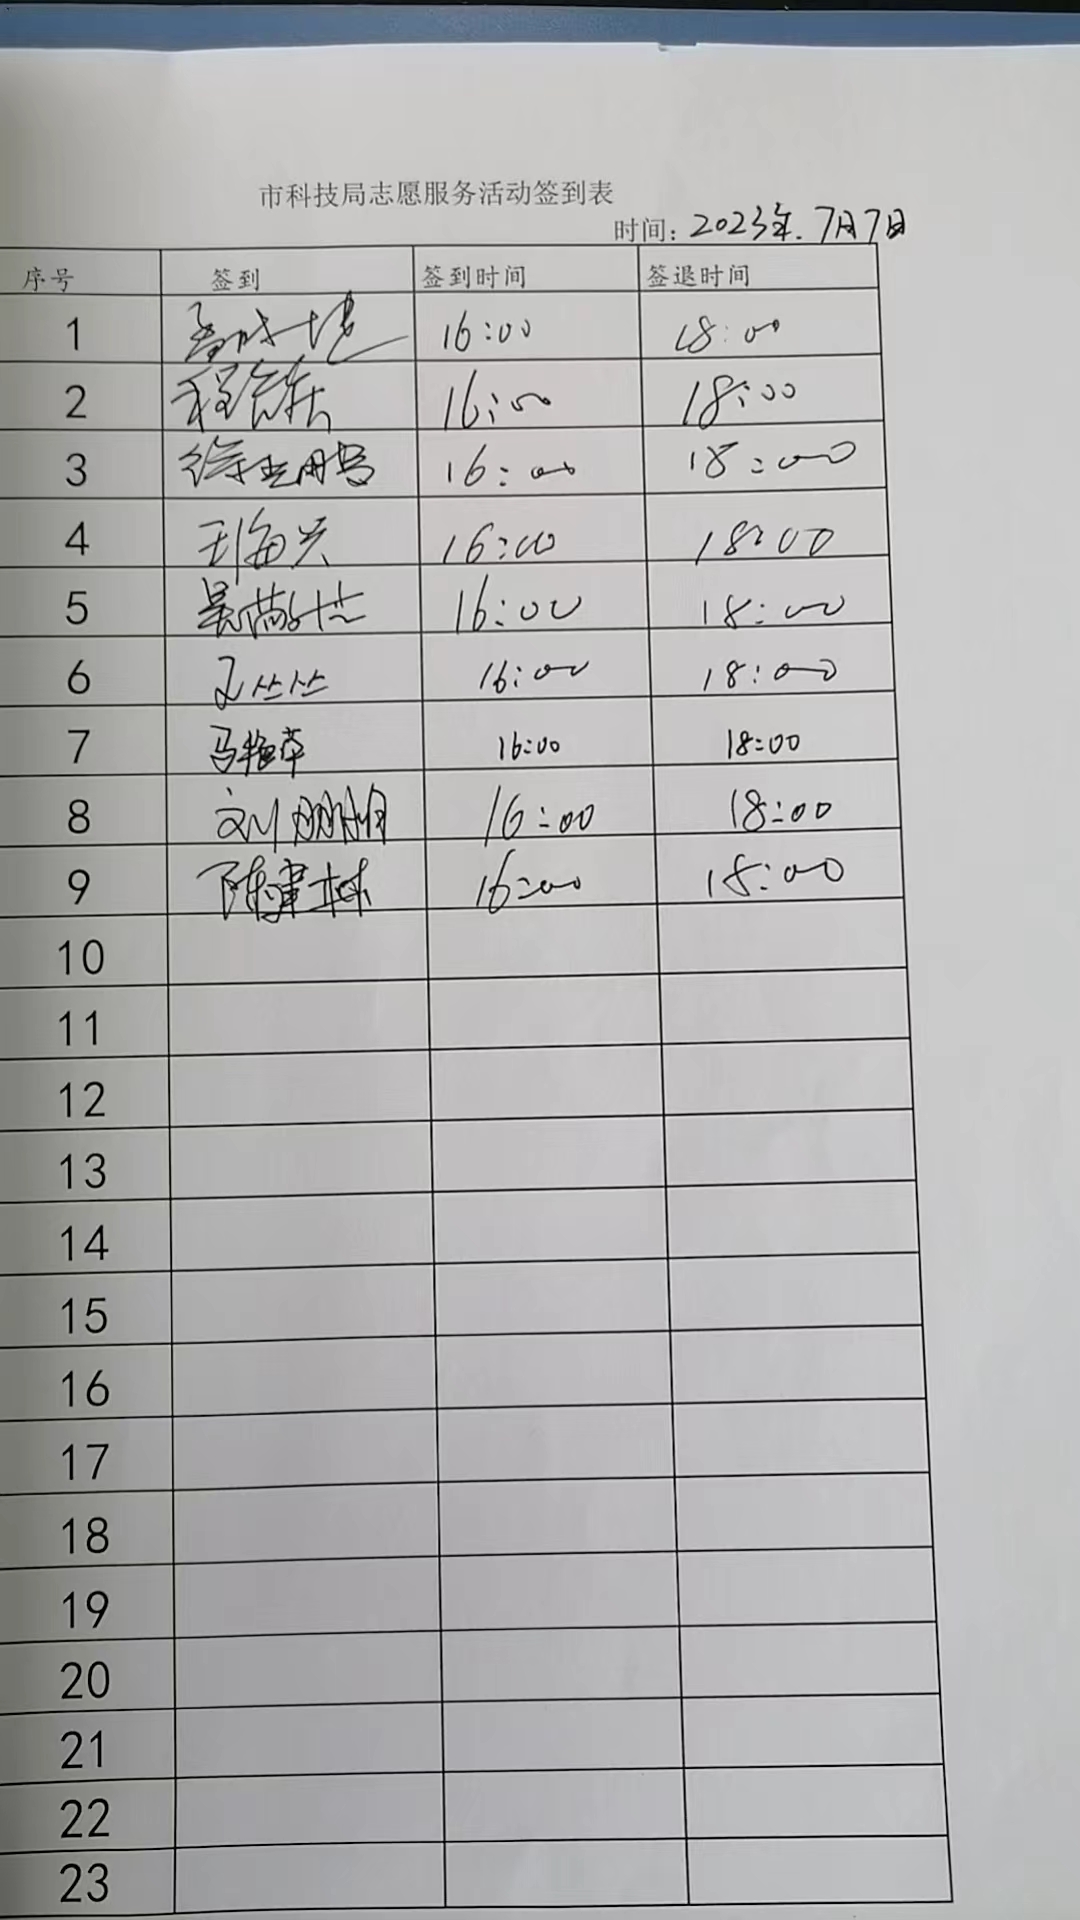 市科技局志愿服务活动签到表
时间：2023年.7月7日
序号 签到 签到时间 签退时间
1 16:00 18:00
2 16:00 18:00
3 16:00 18:00
4 16:00 18:00
5 16:00 18:00
6 王丛丛 16:00 18:00
7 马艳萍 16:00 18:00
8 刘鹏 16:00 18:00
9 陈建林 16:00 18:00
10
11
12
13
14
15
16
17
18
19
20
21
22
23